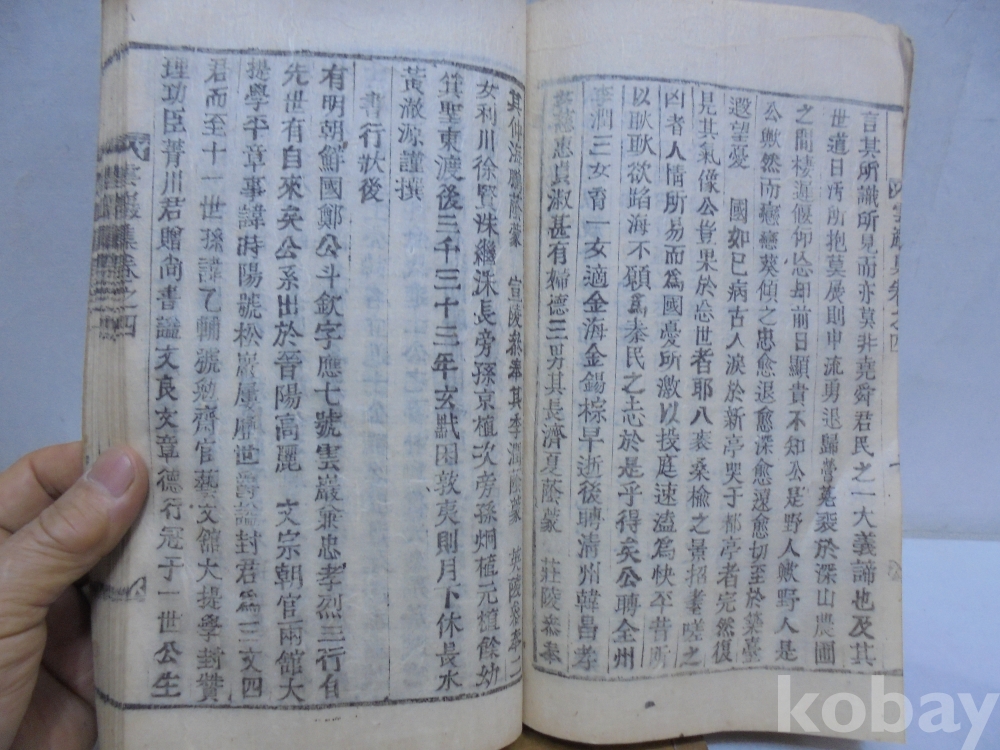 言其所識所見而亦莫非堯舜君民之一大義諦也及其
世道日所抱莫展則中流勇退歸營菟裘於深山農圃
之間棲遲偃仰忘却前日顯貴不知公是野人歟野人是
公歟然而戀戀葵傾之忠愈退愈深愈遠愈切至於築臺
遐望憂 國如己病古人淚於新亭哭于都亭者完然復
見其氣像公豈果於忘世者耶八耋桑楡之景招耋嗟之
凶者人情所易而爲國憂所激以技庭速溘爲快平昔所
以耿耿欲蹈海不願爲秦民之志於是乎得矣公聘全州
李 惠貞淑甚有婦德三男其長濟夏蔭蒙 莊陵叅奉
潤三女育一女適金海金錫棕早逝後聘淸州韓昌孝
其仲 蔭蒙 宣陵叅奉其季潤蔭蒙 英陵叅奉二
女利川徐賢洙繼洙長旁孫京植次旁孫炯植元植餘幼
箕聖東渡後三千三十三年玄黓困敦夷則月下休長水
黃澈源謹撰
書行狀後
有明朝鮮國鄭公斗欽字應七號雲巖兼忠孝烈三行自
先世有自來矣公系出於晉陽高麗 文宗朝官兩館大
提學平章事諱時陽號松巖屢歷世爵謚封君爲三文四
君而至十一世孫諱乙輔號勉齋官藝文館大提學封贊
理功臣菁川君贈尙書謚文良文章德行冠于一世公生
雲巖集卷之四